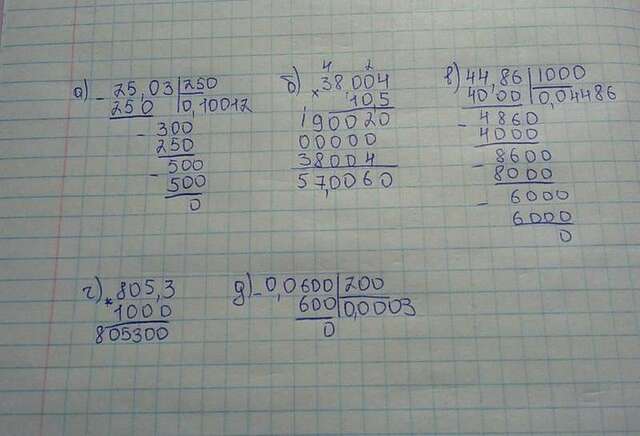 а) - 25,03 | 250
250 | 0,10012
- 300
250
- 500
500
0
б) 4 2
× 38,004
1,05
190020
00000
38004
57,0060
в) - 44,86 | 1000
40 00 | 0,04486
- 4860
4000
- 8600
8000
- 6000
6000
0
г) × 805,3
1000
805300
д) - 0,0600 | 200
600 | 0,0003
0